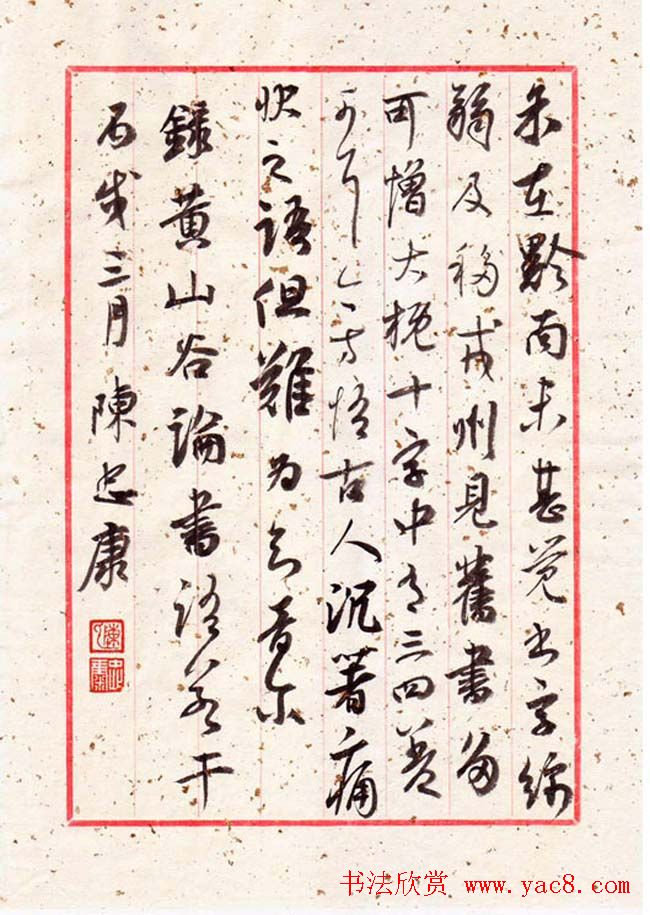 余在黔南未甚觉书字綿
弱及移戎州見舊書多
可憎大概十字中有三四差
可耳今方悟古人沉著痛
快之語但難为知音尔
錄黄山谷論書語若干
丙戌三月陳忠康
书法欣赏 www.yac8.com